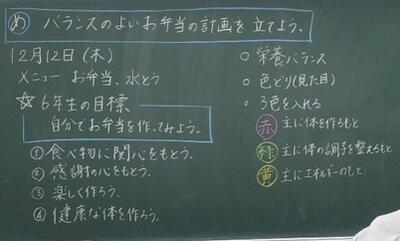 め バランスのよいお弁当の計画を立てよう。
12月12日(木)
メニュー お弁当、水とう
☆6年生の目標
自分でお弁当を作ってみよう。
① 食べ物に関心をもとう。
② 感謝の心をもとう。
③ 楽しく作ろう。
④ 健康な体を作ろう。
○ 栄養バランス
○ 色どり(見た目)
○ 3色を入れる
赤 主に体を作るもと
緑 主に体の調子を整えるもと
黄 主にエネルギーのもと